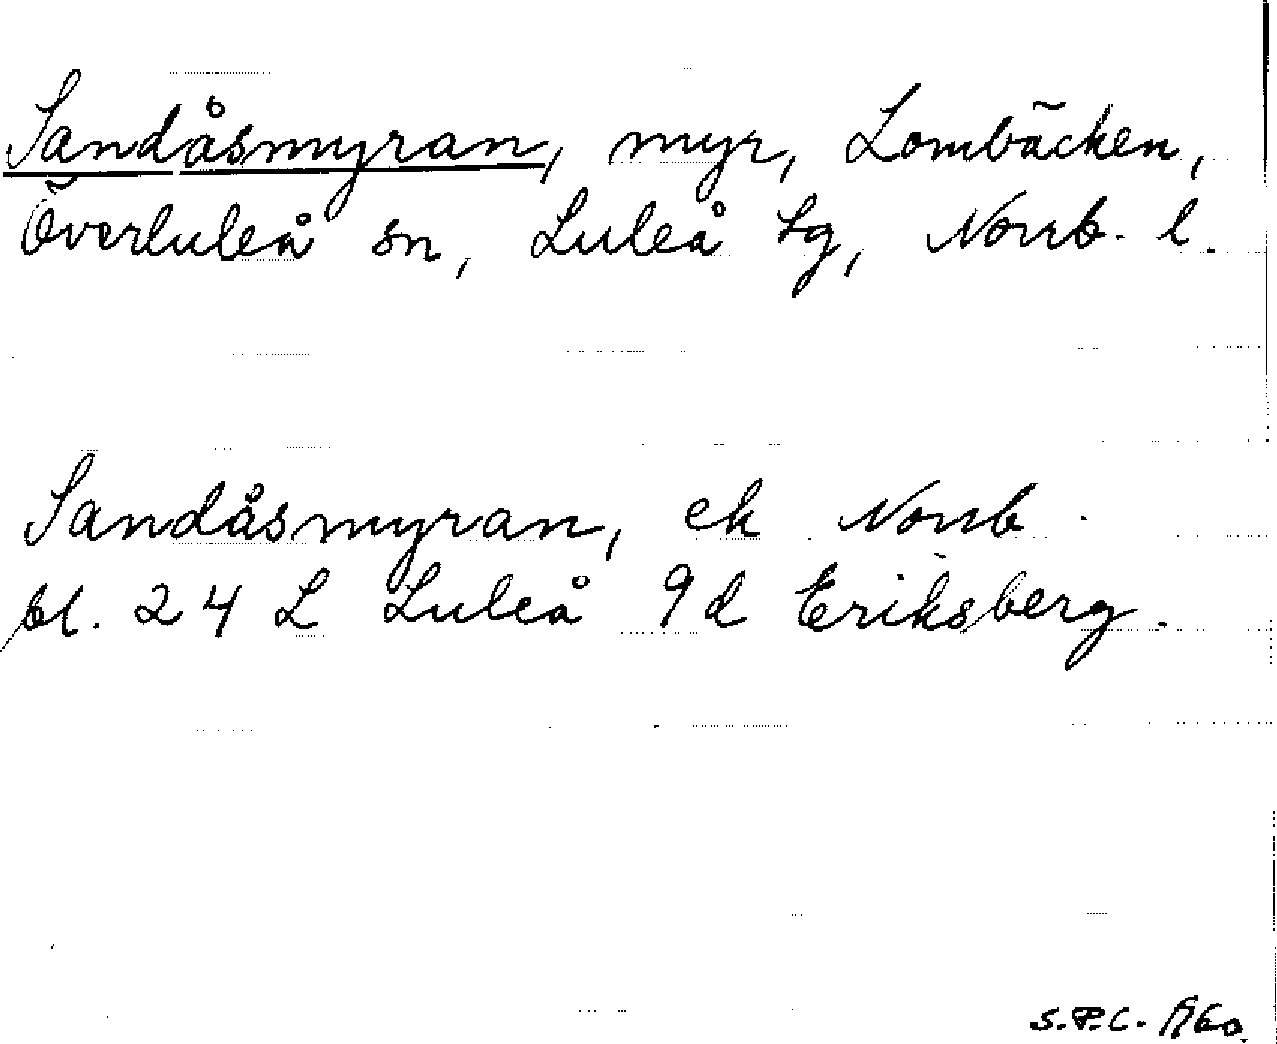 Sandåsmyran, myr, Lombäcken,
Överluleå sn, Luleå tg, Norrb. l.
Sandåsmyran, ek Norrb.
bl. 24 L Luleå 9d Eriksberg.
S.P.C.